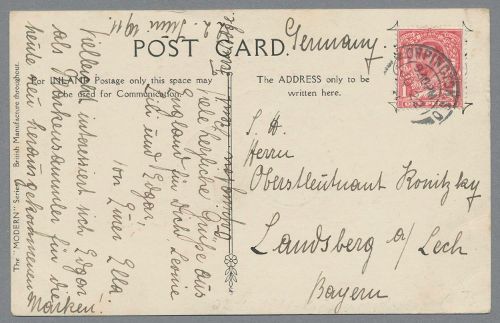 POST CARD.
For INLAND Postage only this space may
be used for Communication.
The ADDRESS only to be
written here.
The "MODERN" Series British Manufacture throughout.
Juni 1911.
Orpington Kent
Viele herzliche Grüße aus
England für Dich, Leonie
Lili und Edgar,
von Eurer Ella.
Vielleicht interessiert sich Edgar
als Markensammler für die
heute neu herausgekommenen
Marken!
Germany
S. H.
Herrn
Oberstleutnant Konitzky
Landsberg a/Lech
Bayern
ORPINGTON S.O.